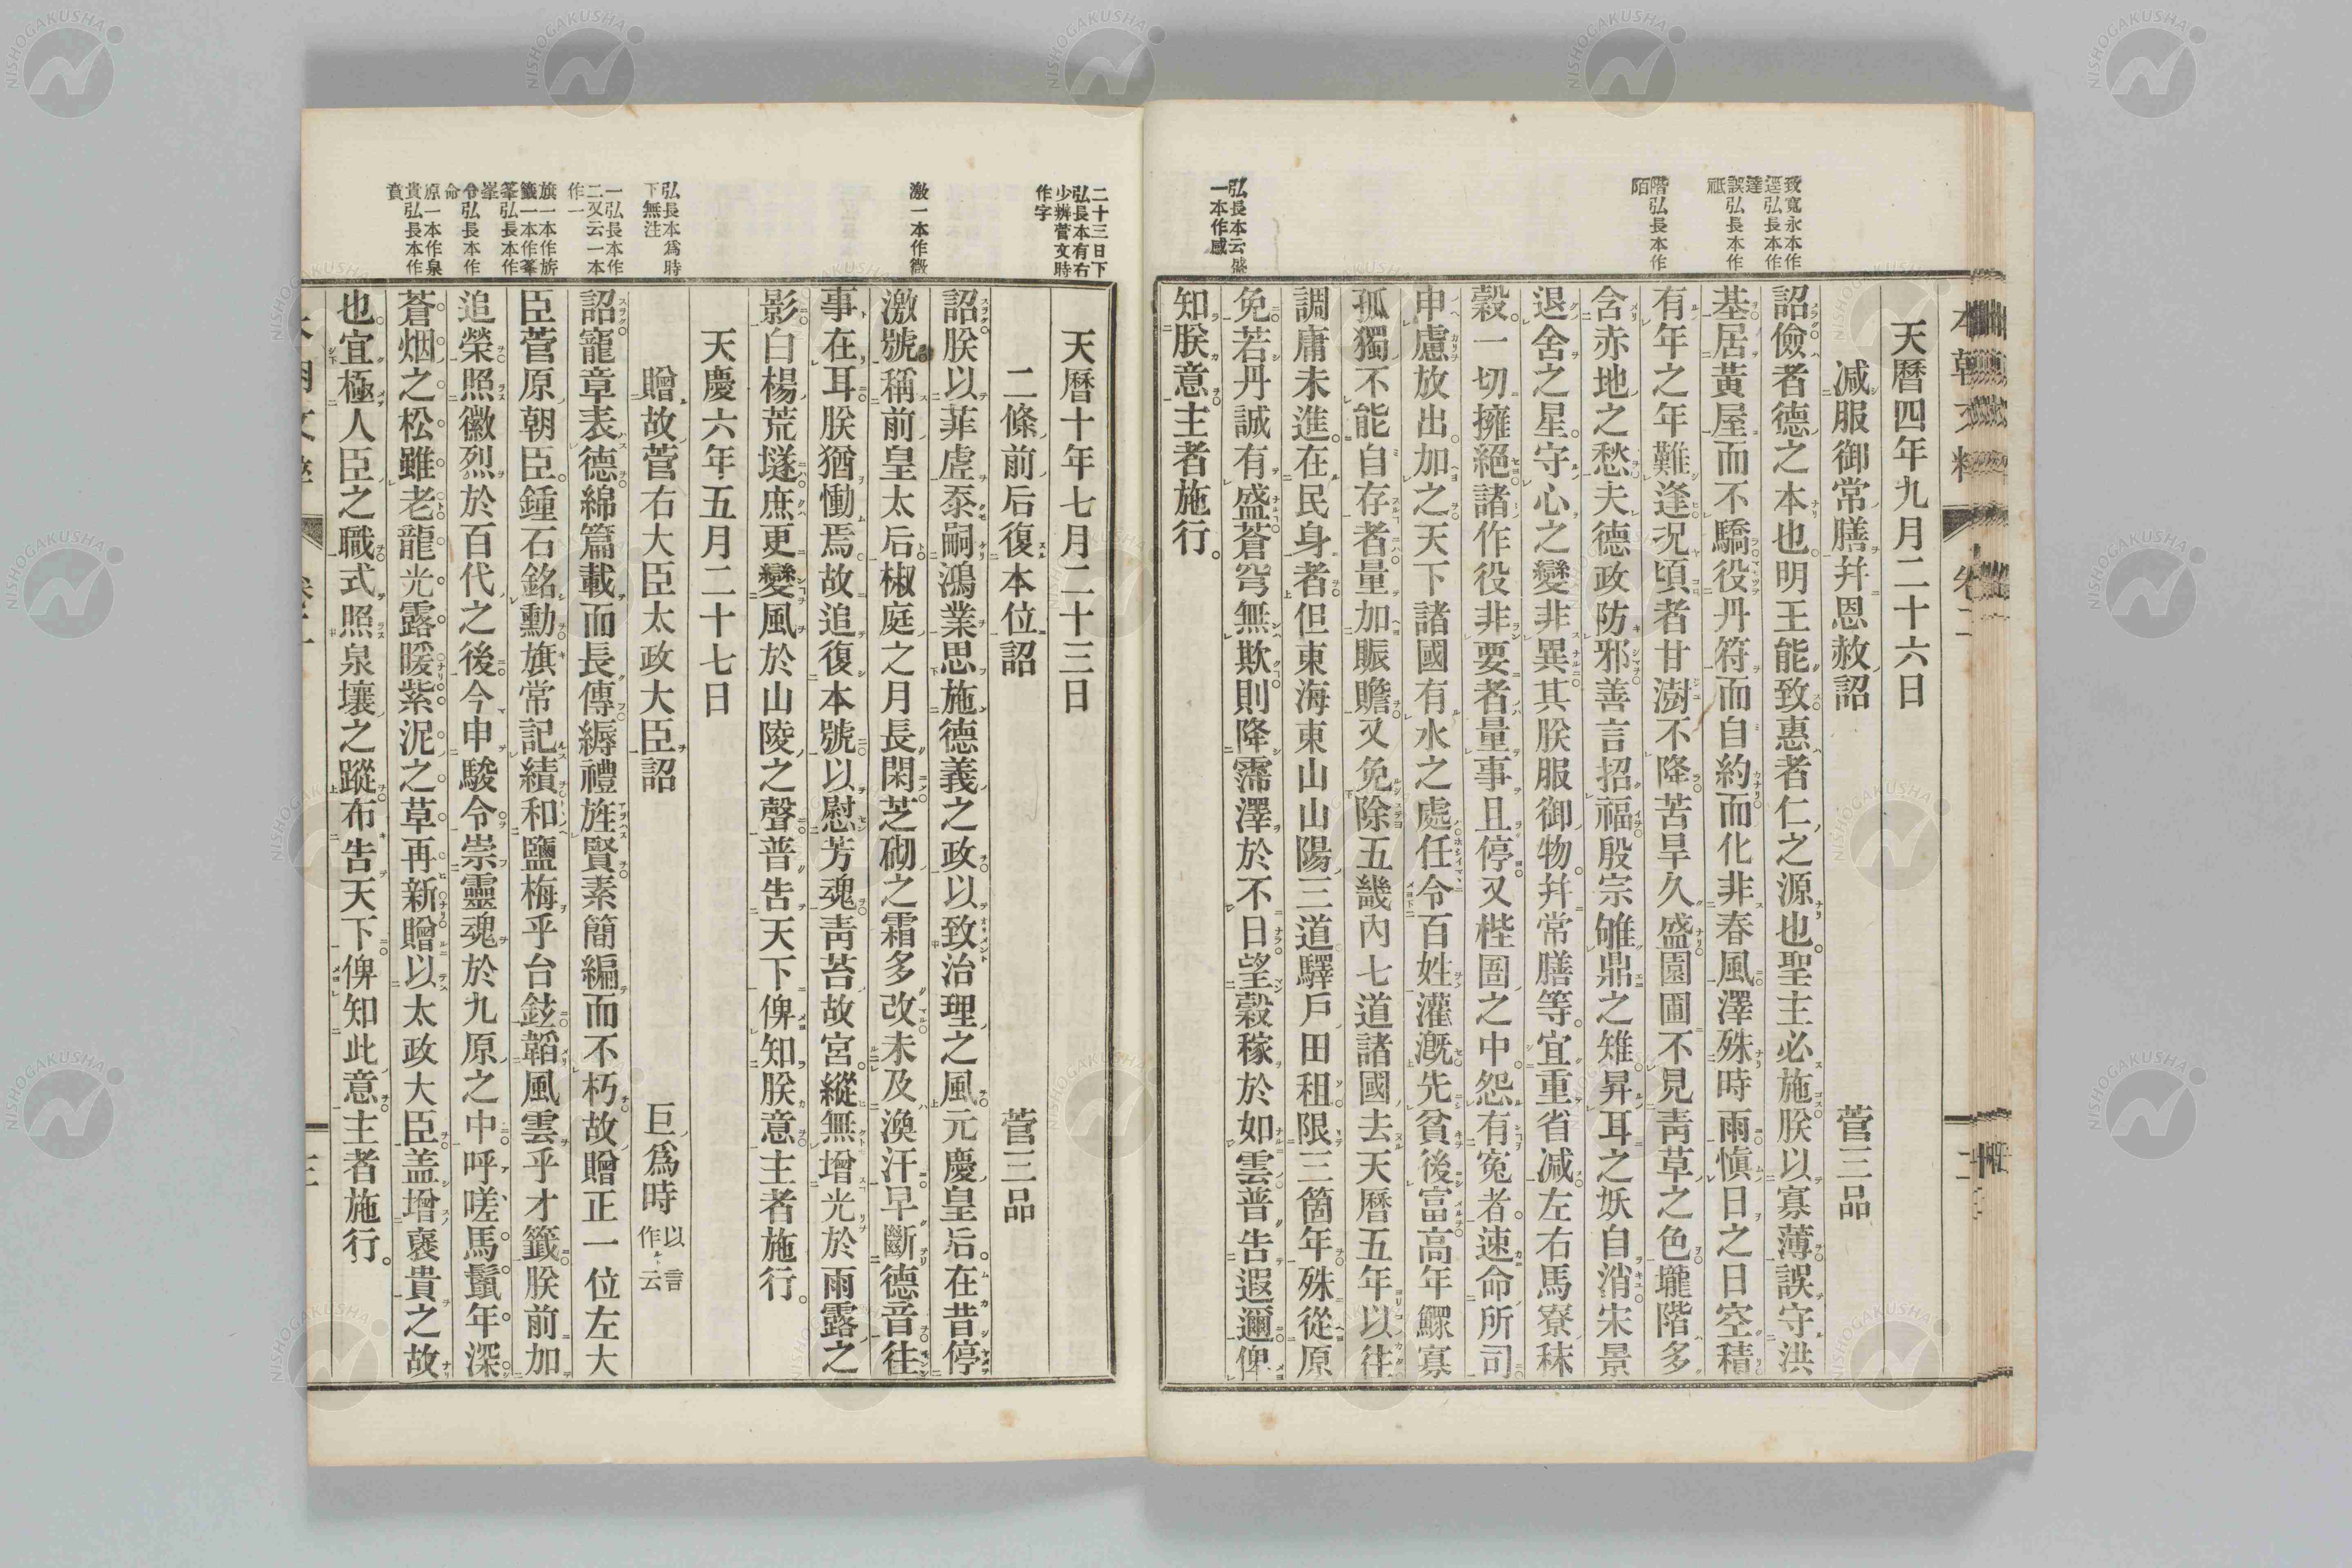 天曆四年九月二十六日
減服御常膳幷恩赦詔 菅三品
詔儉者德之本也明王能致惠者仁之源也。聖主必施朕以寡薄誤守洪
基居黃屋而不驕役丹符而自約而化非春風澤殊時雨愼日之日空積
有年之年難逢況頃者甘澍不降苦旱久盛園圃不見靑草之色壠階多
含赤地之愁夫德政防邪善言招福殷宗雊鼎之雉昇耳之妖自消宋景
退舍之星守心之變非異其朕服御物幷常膳等宜重省減左右馬寮秣
穀一切擁絕諸作役非要者量事且停又狴圄之中怨有寃者速命所司
申慮放出加之天下諸國有水之處任令百姓灌漑先貧後富高年鰥寡
孤獨不能自存者量加賑贍又免除五畿內七道諸國去天曆五年以往
調庸未進在民身者但東海東山山陽三道驛戶田租限三箇年殊從原
免若丹誠有盛蒼穹無欺則降霈澤於不日望穀稼於如雲普告遐邇俾
知朕意主者施行。
致寬永本作
逕弘長本作
達
誤弘長本作
祗
階弘長本作
陌
弘長本云盛
一本作感
天曆十年七月二十三日
二條前后復本位詔 菅三品
詔朕以菲虛忝嗣鴻業思施德義之政以致治理之風元慶皇后在昔停
激號稱前皇太后椒庭之月長閑芝砌之霜多改未及渙汗早斷德音往
事在耳朕猶慟焉故追復本號以慰芳魂靑苔故宮縱無增光於雨露之
影白楊荒墳庶更變風於山陵之聲普告天下俾知朕意主者施行。
天慶六年五月二十七日
贈故菅右大臣太政大臣詔 巨爲時 以言作云云
詔寵章表德綿篇載而長傳縟禮旌賢素簡編而不朽故贈正一位左大
臣菅原朝臣鍾石銘勳旗常記績和鹽梅乎台鉉韜風雲乎才籖朕前加
追榮照徽烈於百代之後今申駿令崇靈魂於九原之中呼嗟馬鬛年深
蒼烟之松雖老龍光露暖紫泥之草再新贈以太政大臣盖增褒貴之故
也宜極人臣之職式照泉壤之蹤布告天下俾知此意主者施行。
二十三日下
弘長本有右
少辨菅文時
作字
激一本作徽
弘長本爲時
下無注
一弘長本作
二又云一本
作一
旗一本作旂
籖一本作峯
峯弘長本作
峯
令弘長本作
命
原一本作泉
貴弘長本作
賁
NISHOGAKUSHA